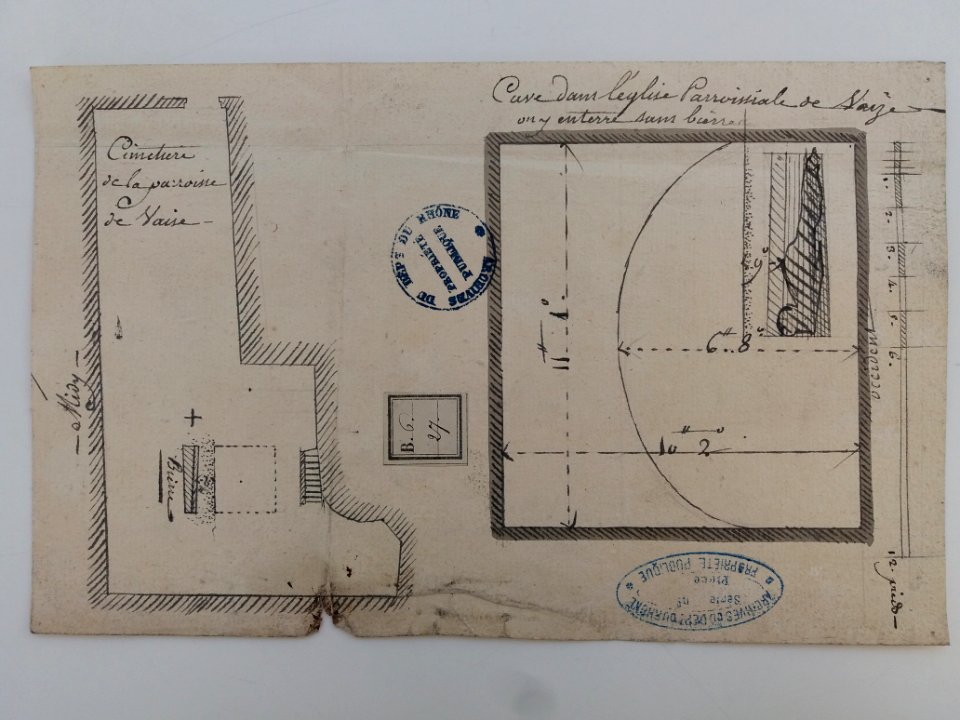 Cimetiere
de la paroisse
de Vaise
Midy
+
Cave dans l'église Parroissiale de Vaize
on y enterre sans bierre
ARCHIVES DU DÉPT DU RHÔNE
PROPRIÉTÉ
PUBLIQUE
B. 6.
27.
11 1
6 8
10 2
9
1.
2.
3.
4.
5.
6.
12 pieds
ARCHIVES DU DÉPT DU RHÔNE
Série n°
Pièce
PROPRIÉTÉ PUBLIQUE